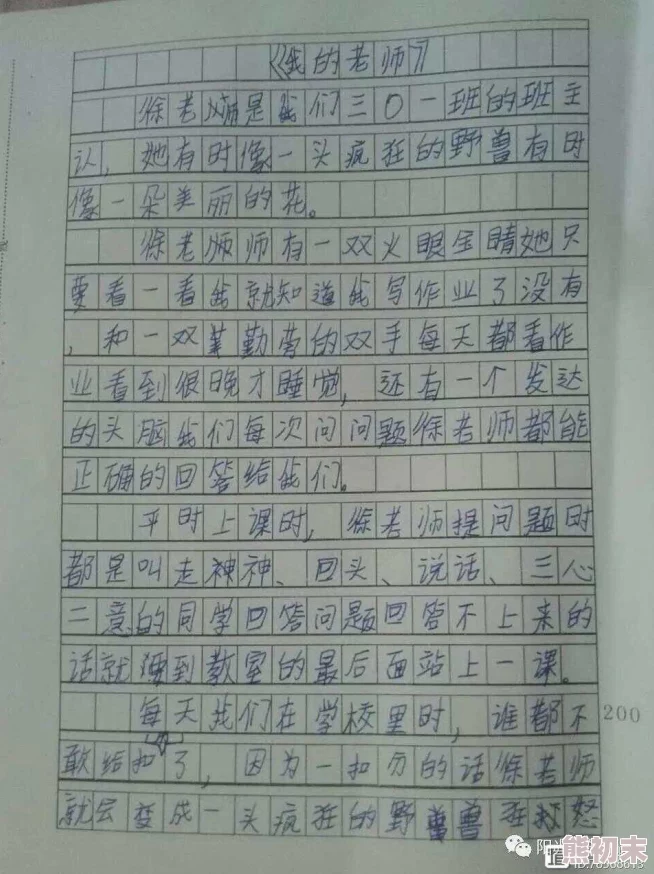 《我的老师》
徐老师是我们三〇一班的班主
认,她有时像一头疯狂的野兽有时
像一朵美丽的花。
徐老师师有一双火眼金睛她只
要看一看我就知道我写作业了没有
,和一双勤劳的双手每天都看作
业看到很晚才睡觉,还有一个发达
的头脑我们每次问问题徐老师都能
正确的回答给我们。
平时上课时,徐老师提问题时
都是叫走神神、回头、说话、三心
二意的同学回答问题回答不上来的
话就到教室的最后面站上一课。
每天我们在学校里时,谁都不
200
敢给扣了,因为一扣分的话徐老师
就会变成一头疯狂的野兽狂怒
熊初末